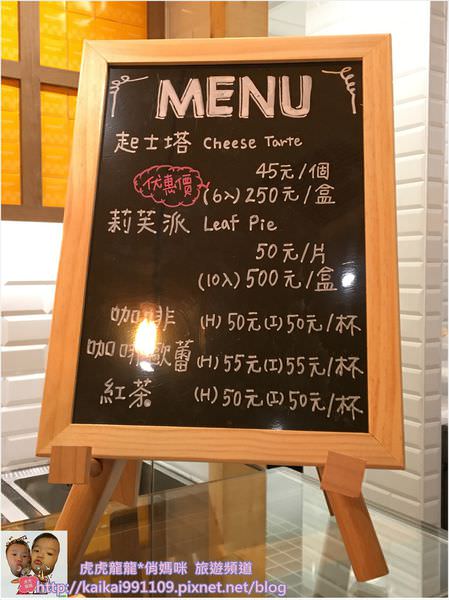 MENU
起士塔 Cheese Tarte
45元/個
优惠價 (6入) 250元/盒
莉芙派 Leaf Pie
50元/片
(10入) 500元/盒
咖啡 (H) 50元 (I) 50元/杯
咖啡歐蕾 (H) 55元 (I) 55元/杯
紅茶 (H) 50元 (I) 50元/杯
虎虎龍龍*俏媽咪 旅遊頻道
http://kaikai991109.pixnet.net/blog